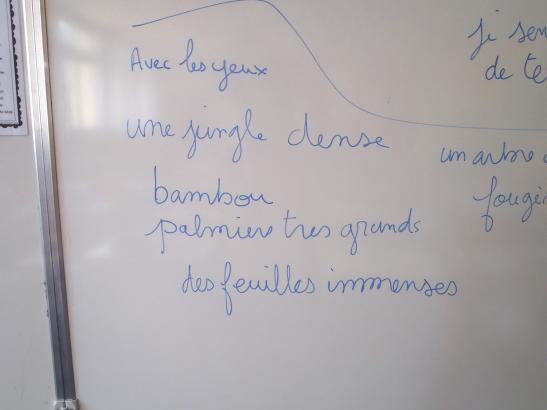 Avec les yeux
une jungle dense
bambou
palmiers tres grands
des feuilles immenses
ji sen
de te
un arbre
fougè